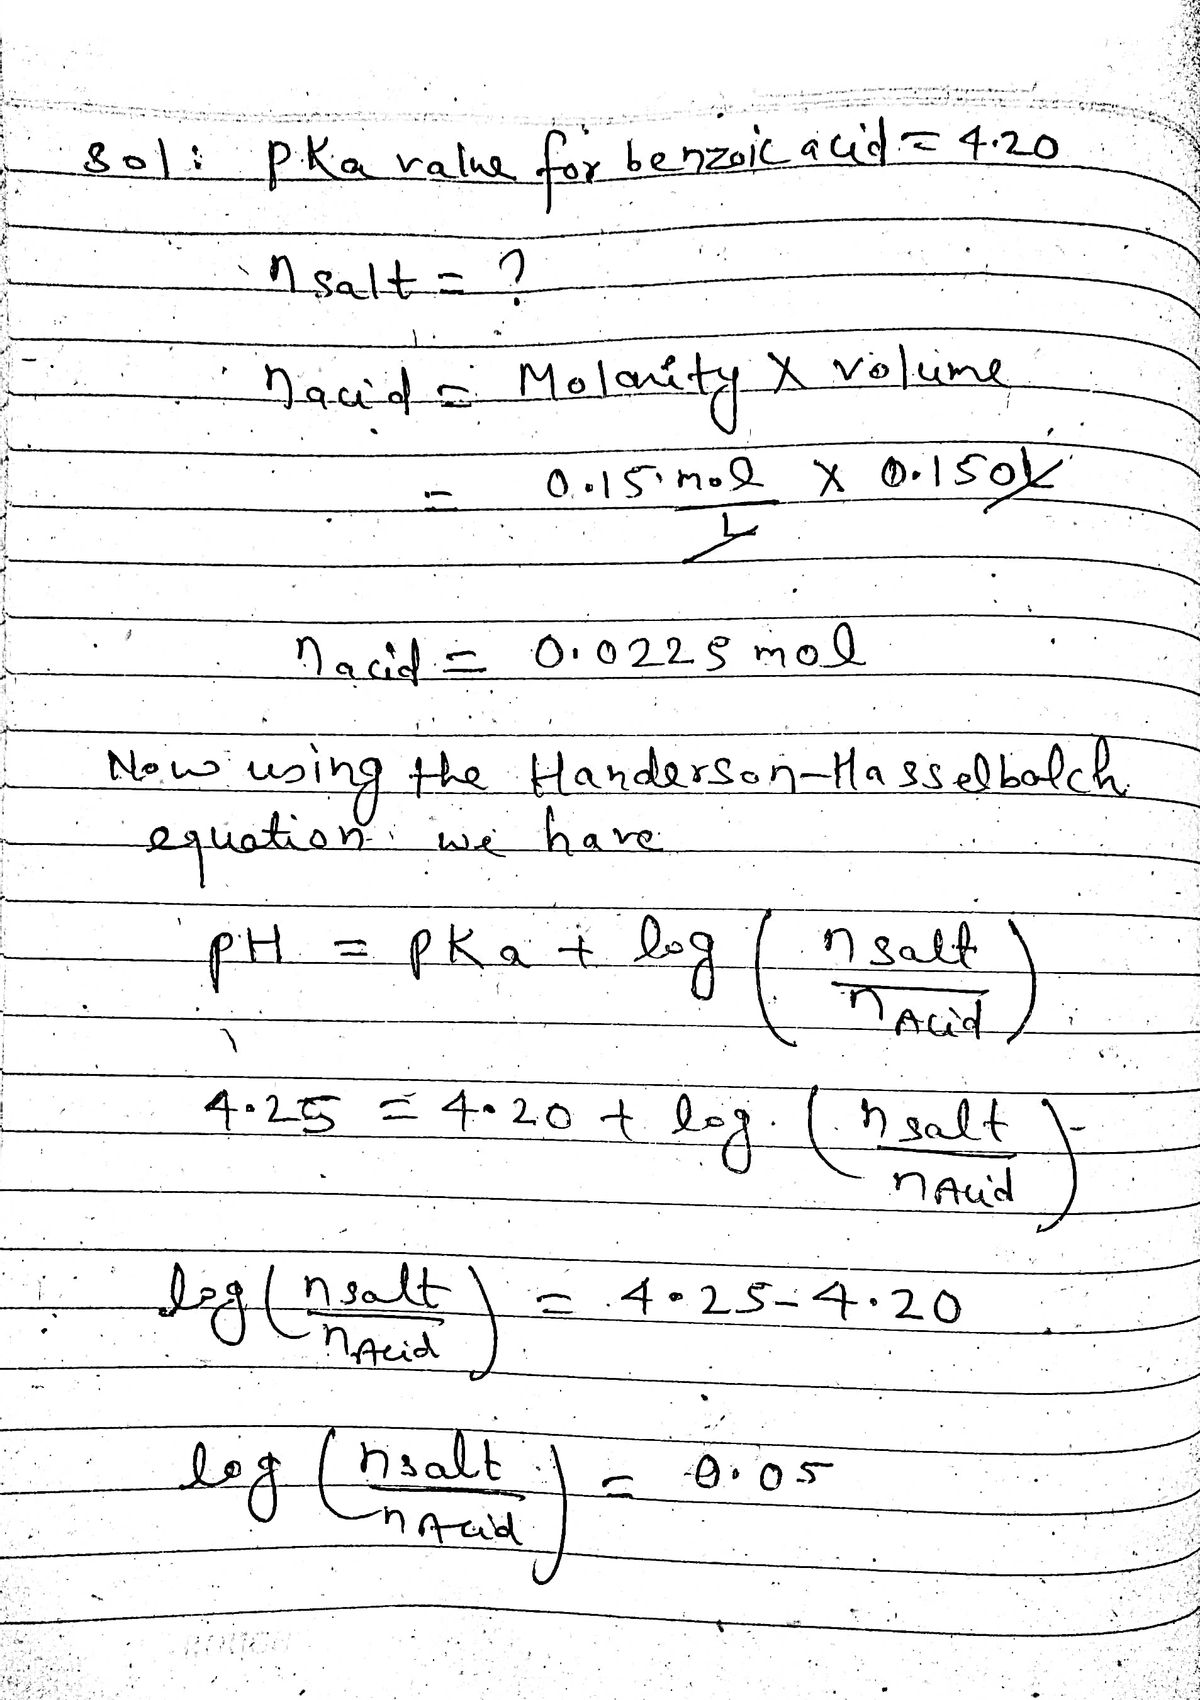 Sol: pKa value for benzoic acid = 4.20
n salt = ?
n acid = Molarity X volume
= 0.15 mol / L X 0.150 L
n acid = 0.0225 mol
Now using the Handerson-Hasselbalch
equation we have
pH = pKa + log ( n salt / n Acid )
4.25 = 4.20 + log ( n salt / n Acid )
log ( n salt / n Acid ) = 4.25 - 4.20
log ( n salt / n Acid ) = 0.05